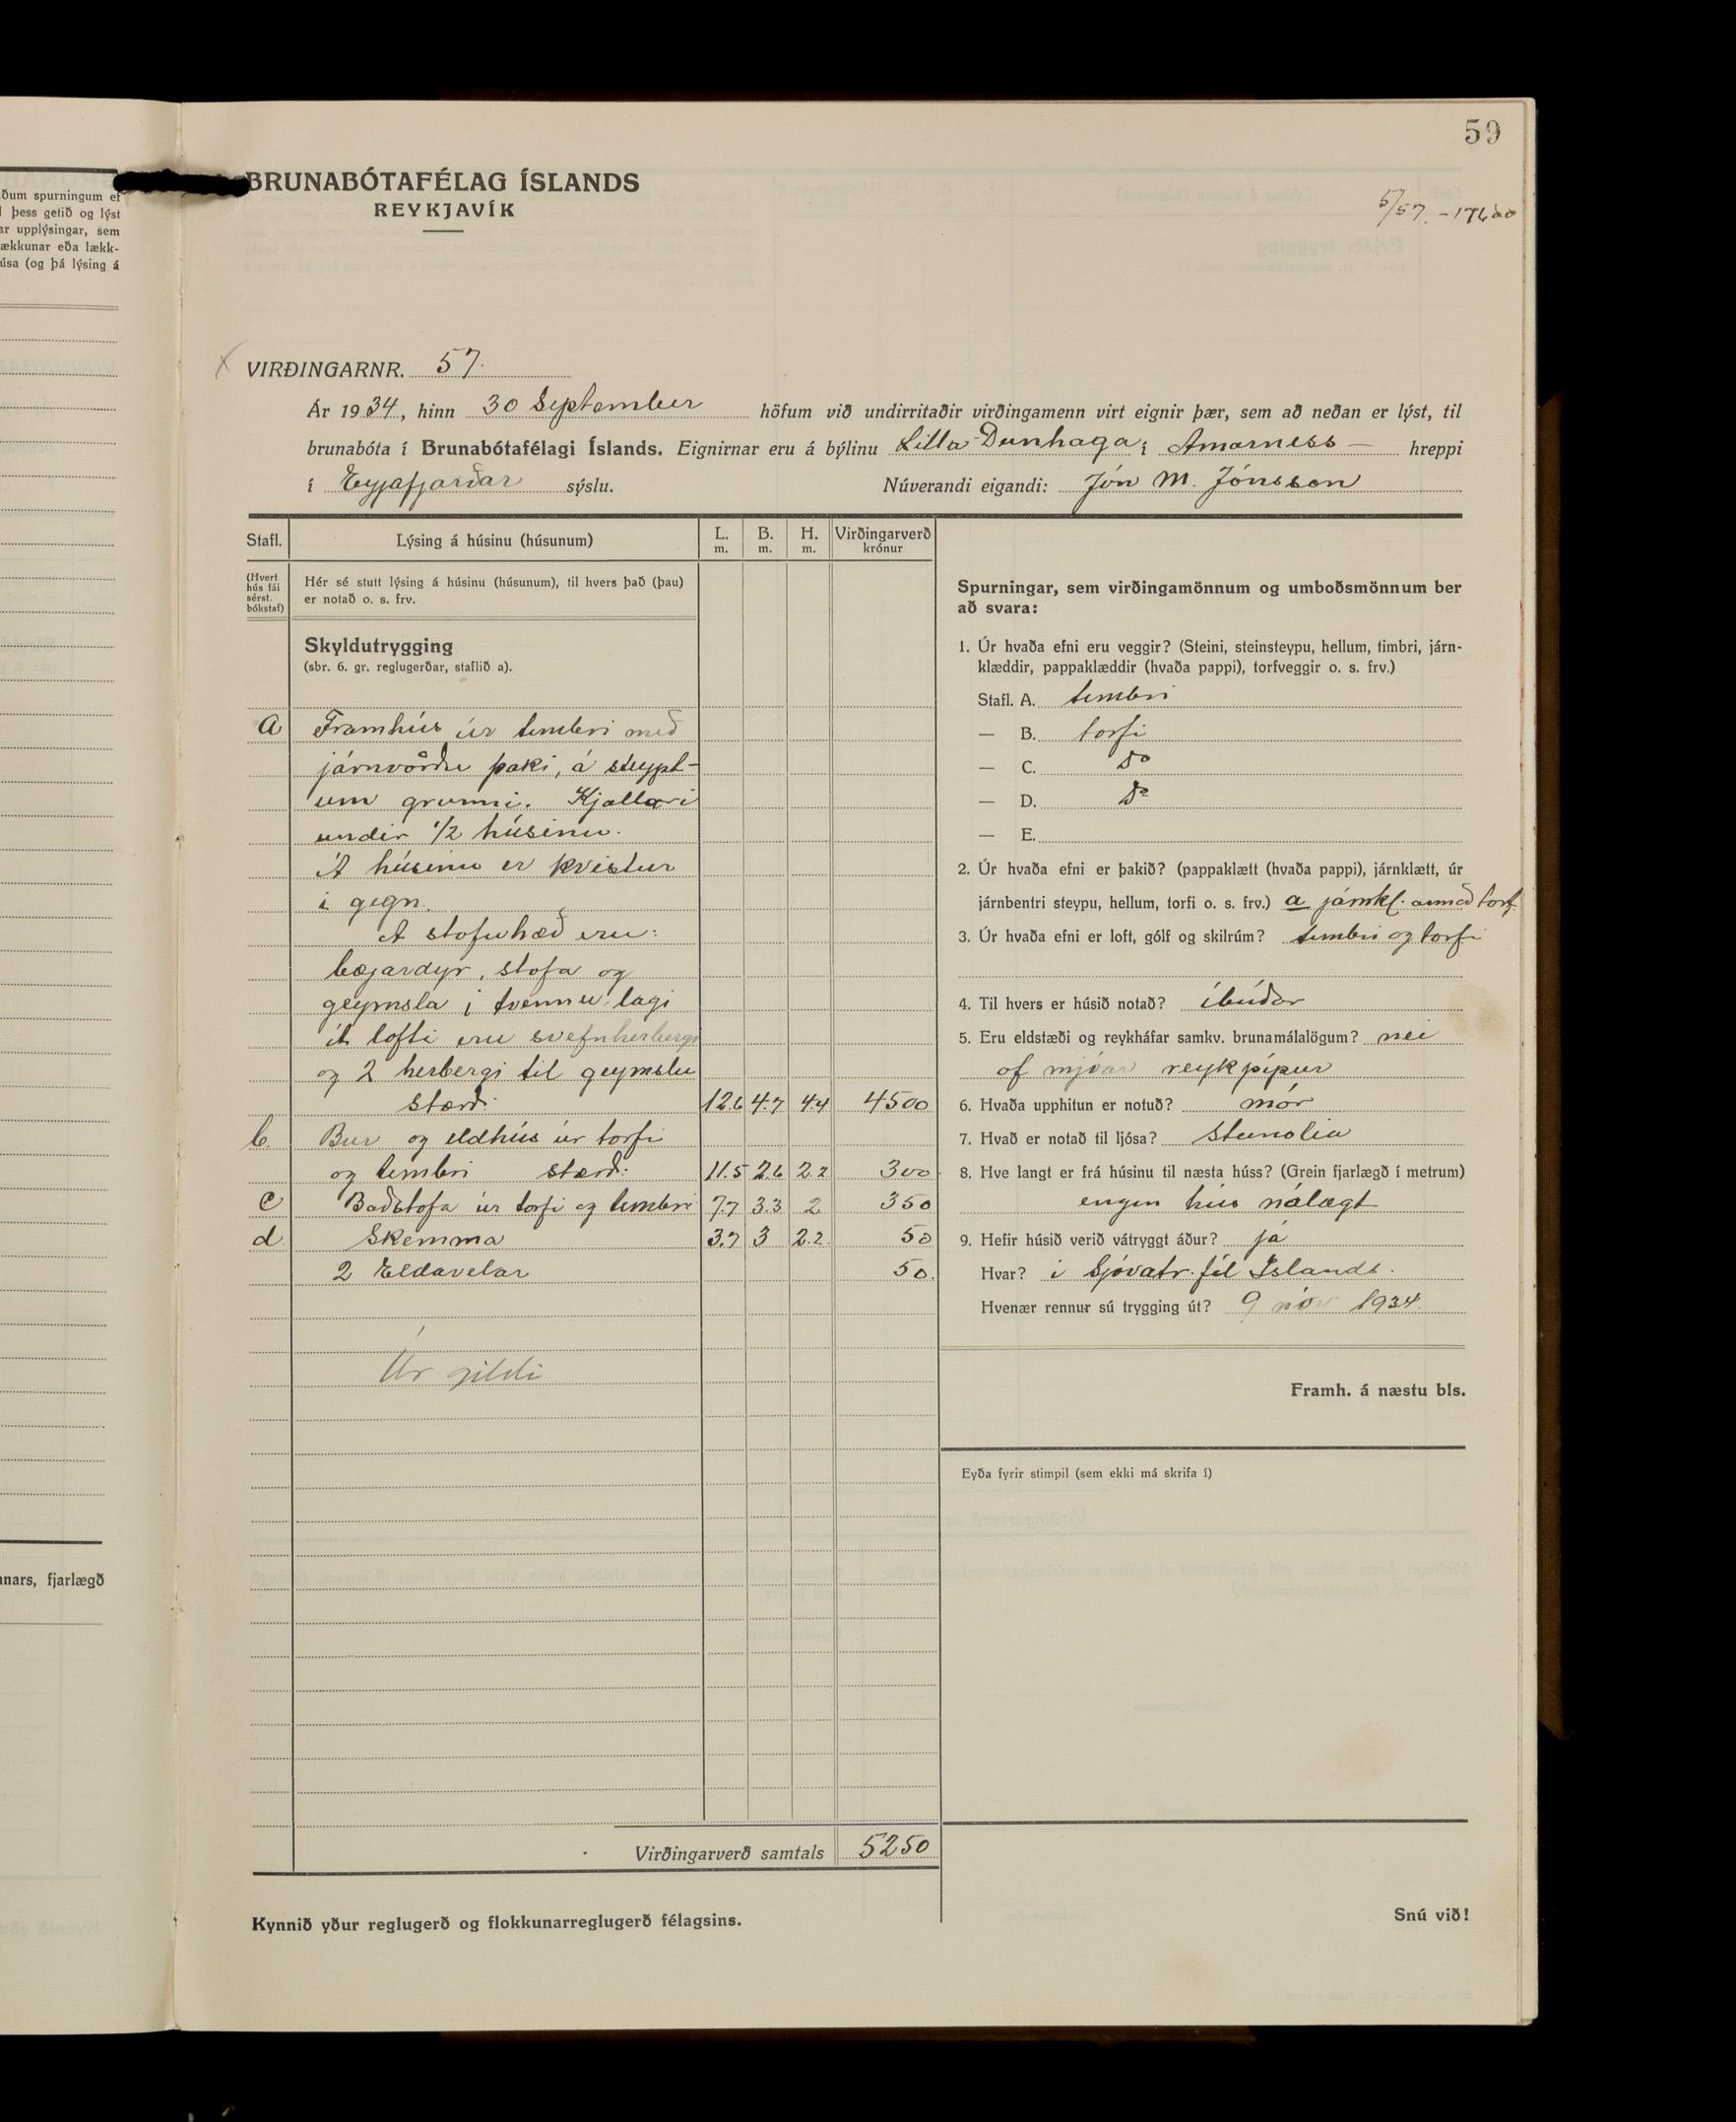 59
ðum spurningum er
þess getið og lýst
ar upplýsingar, sem
ækkunar eða lækk-
úsa (og þá lýsing á
nnars, fjarlægð
BRUNABÓTAFÉLAG ÍSLANDS
REYKJAVÍK
5/57. - 17600
VIRÐINGARNR. 57.
Ár 1934, hinn 30 September höfum við undirritaðir virðingamenn virt eignir þær, sem að neðan er lýst, til
brunabóta í Brunabótafélagi Íslands. Eignirnar eru á býlinu Litla-Dunhaga í Arnarness — hreppi
í Eyjafjarðar sýslu. Núverandi eigandi: Jón M. Jónsson
Stafl. Lýsing á húsinu (húsunum) L. m. B. m. H. m. Virðingarverð krónur
(Hvert hús fái sérst. bókstaf)
Hér sé stutt lýsing á húsinu (húsunum), til hvers það (þau)
er notað o. s. frv.
Skyldutrygging
(sbr. 6. gr. reglugerðar, staflið a).
a Framhús úr timbri með
járnvörðu þaki, á steypt-
um grunni. Kjallari
undir 1/2 húsinu.
Á húsinu er kvistur
í gegn.
Á stofuhæð eru:
bæjardyr, stofa og
geymsla í tvennu lagi
Á lofti eru svefnherbergi
og 2 herbergi til geymslu
Stærð: 12.6 4.7 4.4 4500
b. Bur og eldhús úr torfi
og timbri stærð: 11.5 2.6 2.2 300
c Baðstofa úr torfi og timbri 7.7 3.3 2 350
d Skemma 3.7 3 2.2 50
2 Eldavelar 50.
Úr gildi
Virðingarverð samtals 5250
Kynnið yður reglugerð og flokkunarreglugerð félagsins.
Spurningar, sem virðingamönnum og umboðsmönnum ber
að svara:
1. Úr hvaða efni eru veggir? (Steini, steinsteypu, hellum, timbri, járn-
klæddir, pappaklæddir (hvaða pappi), torfveggir o. s. frv.)
Stafl. A. timbri
— B. torfi
— C. Do
— D. Do
— E.
2. Úr hvaða efni er þakið? (pappaklætt (hvaða pappi), járnklætt, úr
járnbentri steypu, hellum, torfi o. s. frv.) a járnkl. annað torf
3. Úr hvaða efni er loft, gólf og skilrúm? timbri og torfi
4. Til hvers er húsið notað? íbúðar
5. Eru eldstæði og reykháfar samkv. brunamálalögum? nei
of mjóar reykpípur
6. Hvaða upphitun er notuð? mór
7. Hvað er notað til ljósa? Steinolia
8. Hve langt er frá húsinu til næsta húss? (Grein fjarlægð í metrum)
engin hús nálægt
9. Hefir húsið verið vátryggt áður? já
Hvar? í Sjóvátr. fél Íslands.
Hvenær rennur sú trygging út? 9 nóv 1934.
Framh. á næstu bls.
Eyða fyrir stimpil (sem ekki má skrifa í)
Snú við!